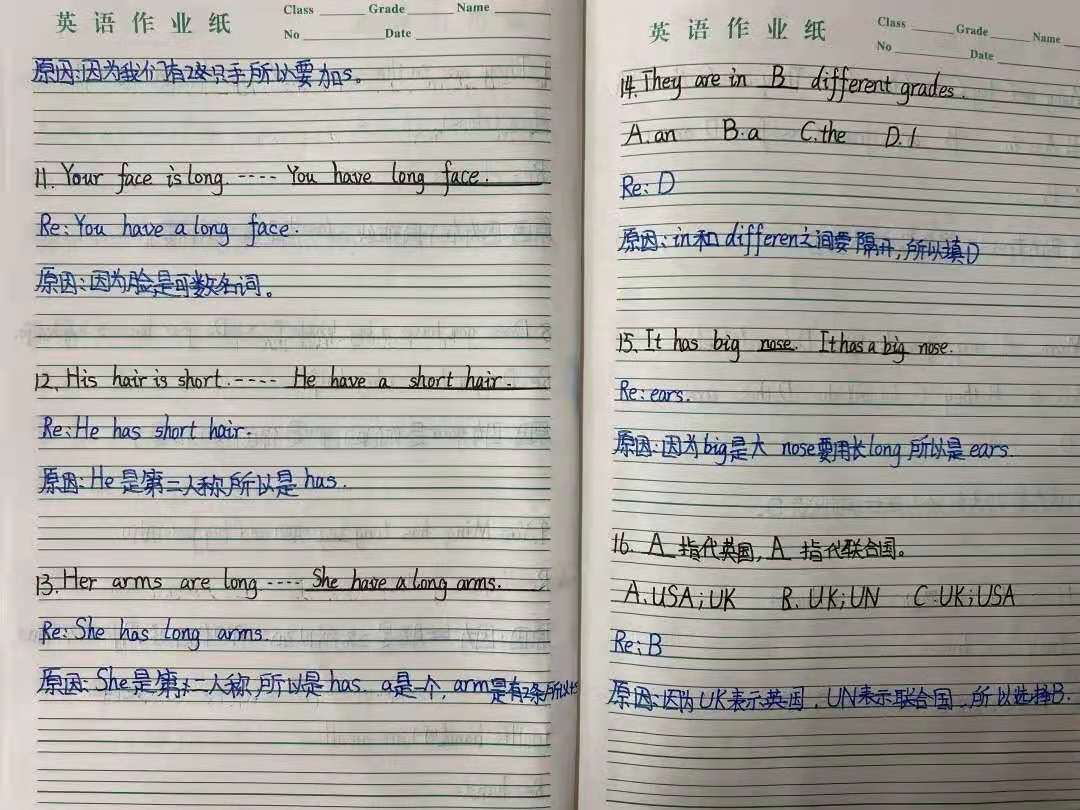 英语作业纸
Class Grade Name
No Date
原因:因为我们有2只手所以要加s。
11. Your face is long. ---- You have long face.
Re: You have a long face.
原因:因为脸是可数名词。
12. His hair is short. ---- He have a short hair.
Re: He has short hair.
原因: He 是第三人称,所以是 has.
13. Her arms are long ---- She have a long arms.
Re: She has long arms.
原因: She是第三人称,所以是has. a是一个, arm是有2条所以
英语作业纸
Class Grade Name
No Date
14. They are in B different grades.
A. an B. a C. the D. /
Re: D
原因: in和differen之间要隔开,所以填D
15. It has big nose. It has a big nose.
Re: ears.
原因:因为big是大 nose要用长long 所以是ears.
16. A 指代英国, A 指代联合国。
A. USA; UK B. UK; UN C. UK; USA
Re: B
原因:因为UK表示英国, UN表示联合国,所以选择B.